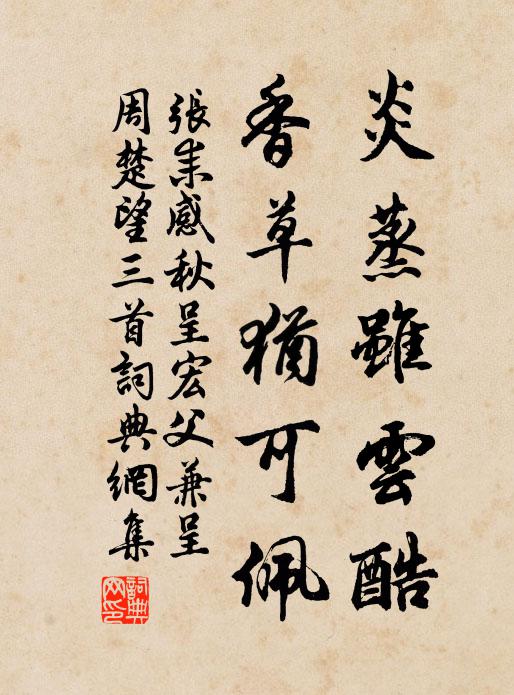 炎蒸雖雲酷
香草猶可佩
張耒感秋呈宏父兼呈
周楚望三首詞典網集
詞典
网印